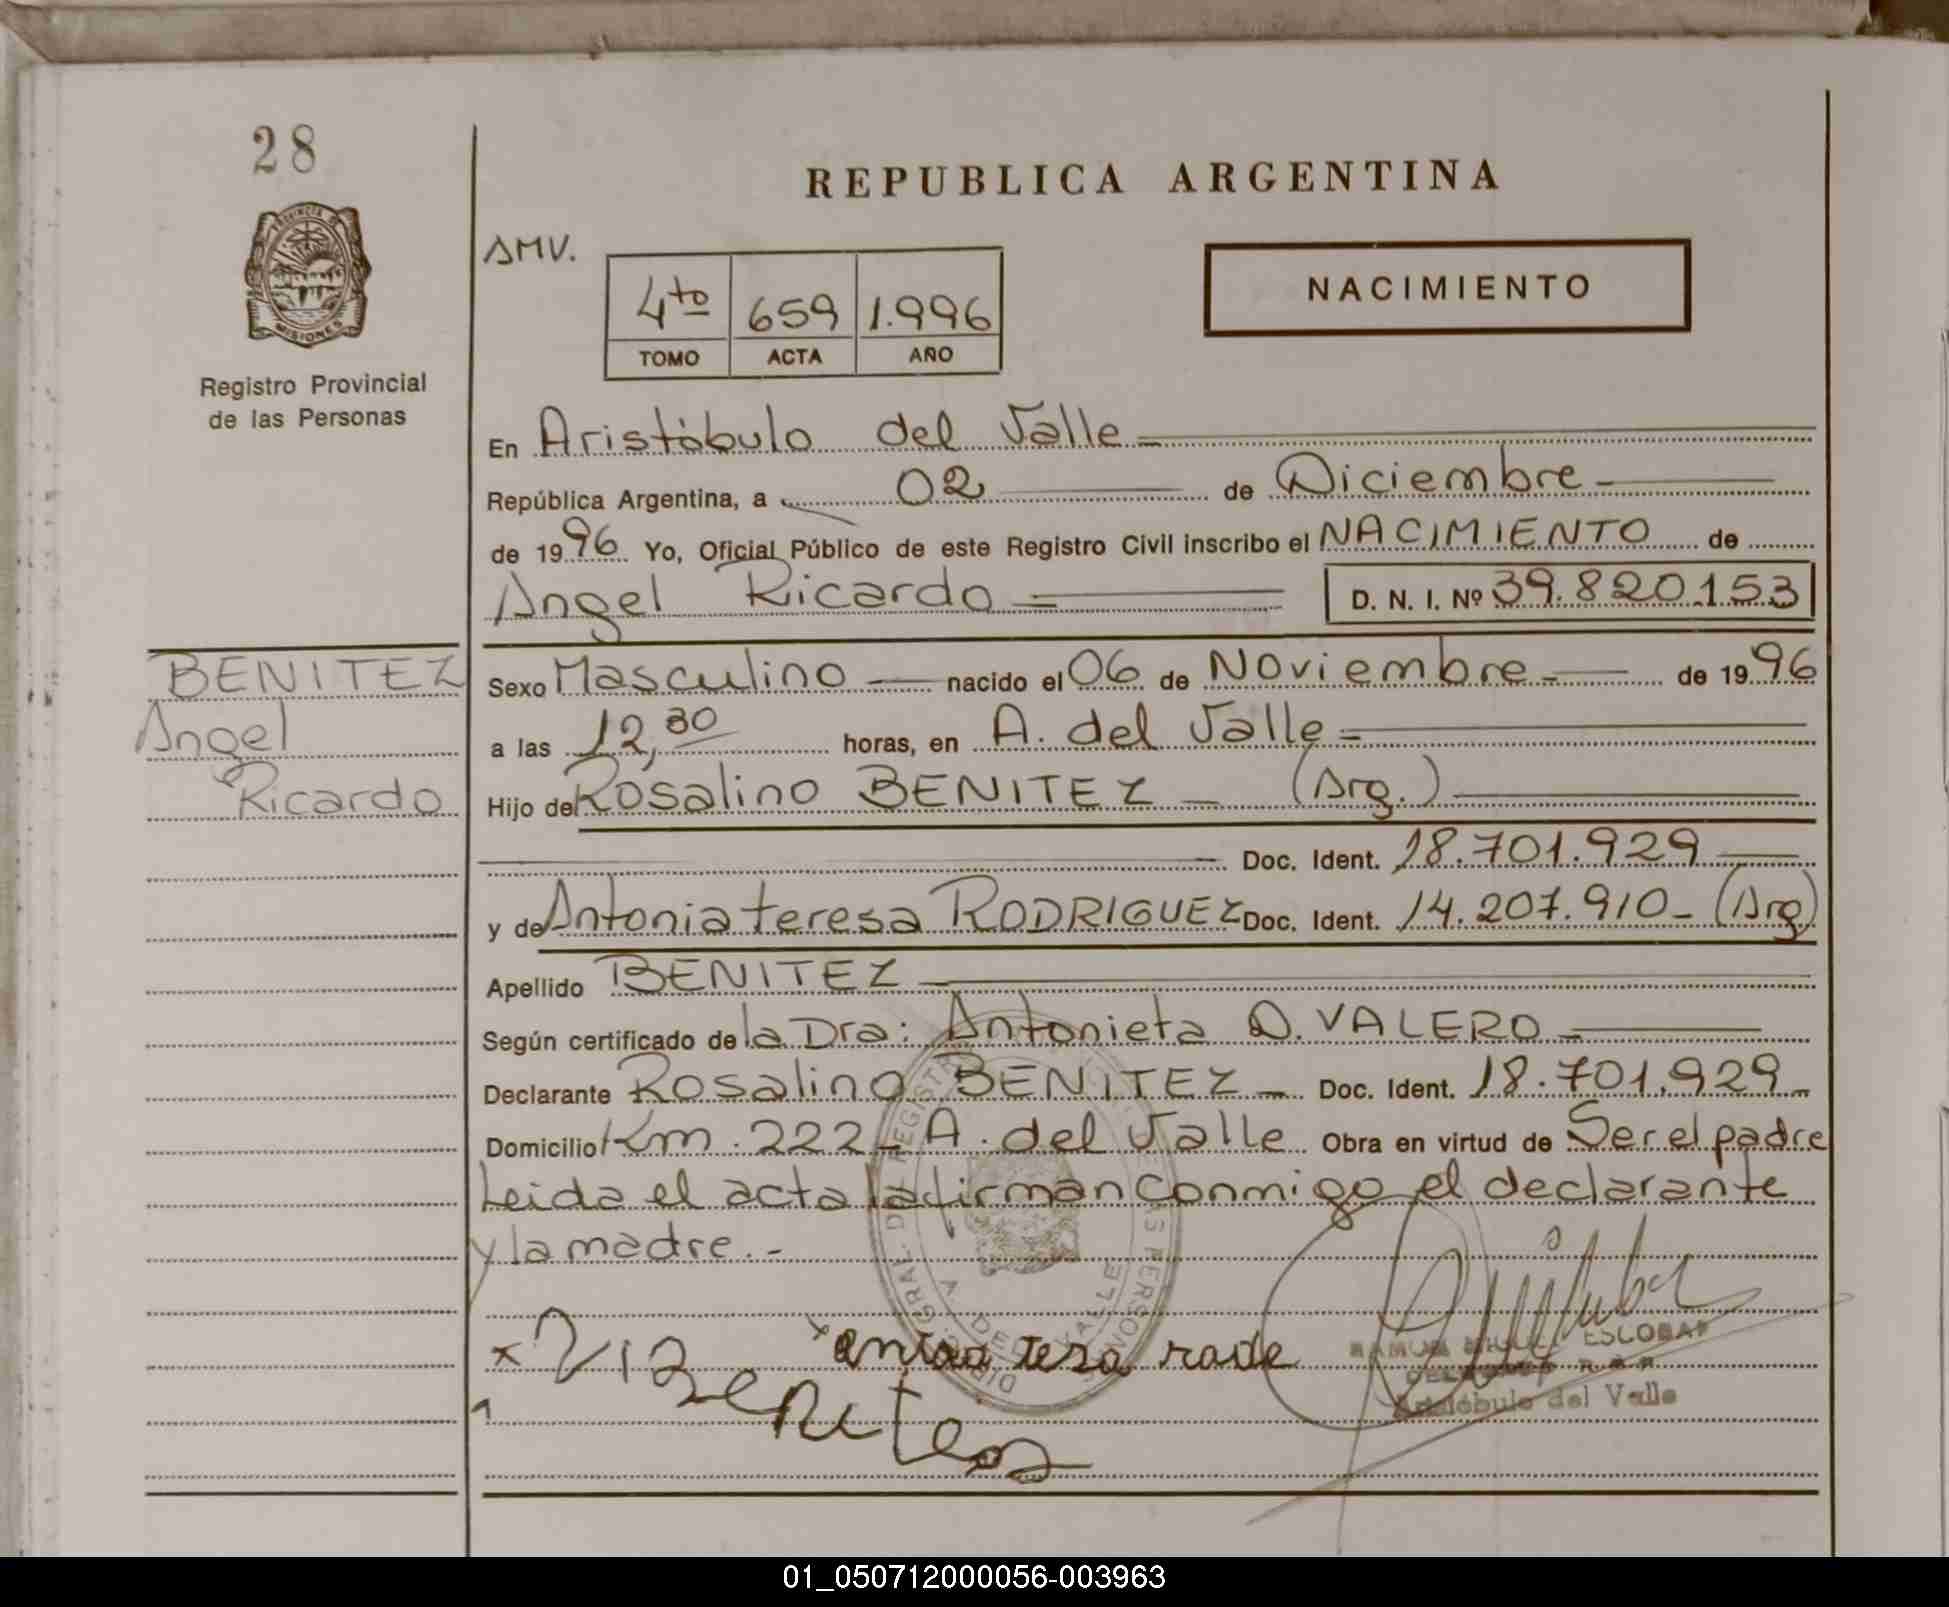 28
REPUBLICA ARGENTINA
PROVINCIA DE
MISIONES
Registro Provincial
de las Personas
AMV.
4to 659 1.996
TOMO ACTA AÑO
NACIMIENTO
En Aristóbulo del Valle
República Argentina, a 02 de Diciembre
de 1996 Yo, Oficial Público de este Registro Civil inscribo el NACIMIENTO de
Angel Ricardo D. N. I. Nº 39.820.153
BENITEZ
Angel
Ricardo
Sexo Masculino nacido el 06 de Noviembre de 1996
a las 12,30 horas, en A. del Valle
Hijo de Rosalino BENITEZ (Arg.)
Doc. Ident. 18.701.929
y de Antonia teresa RODRIGUEZ Doc. Ident. 14.207.910- (Arg)
Apellido BENITEZ
Según certificado de la Dra: Antonieta D. VALERO
Declarante Rosalino BENITEZ Doc. Ident. 18.701.929
Domicilio Km. 222 - A. del Valle Obra en virtud de Ser el padre
Leida el acta la firman conmigo el declarante
y la madre.-
ESCOBAR
Aristóbulo del Valle
01_050712000056-003963